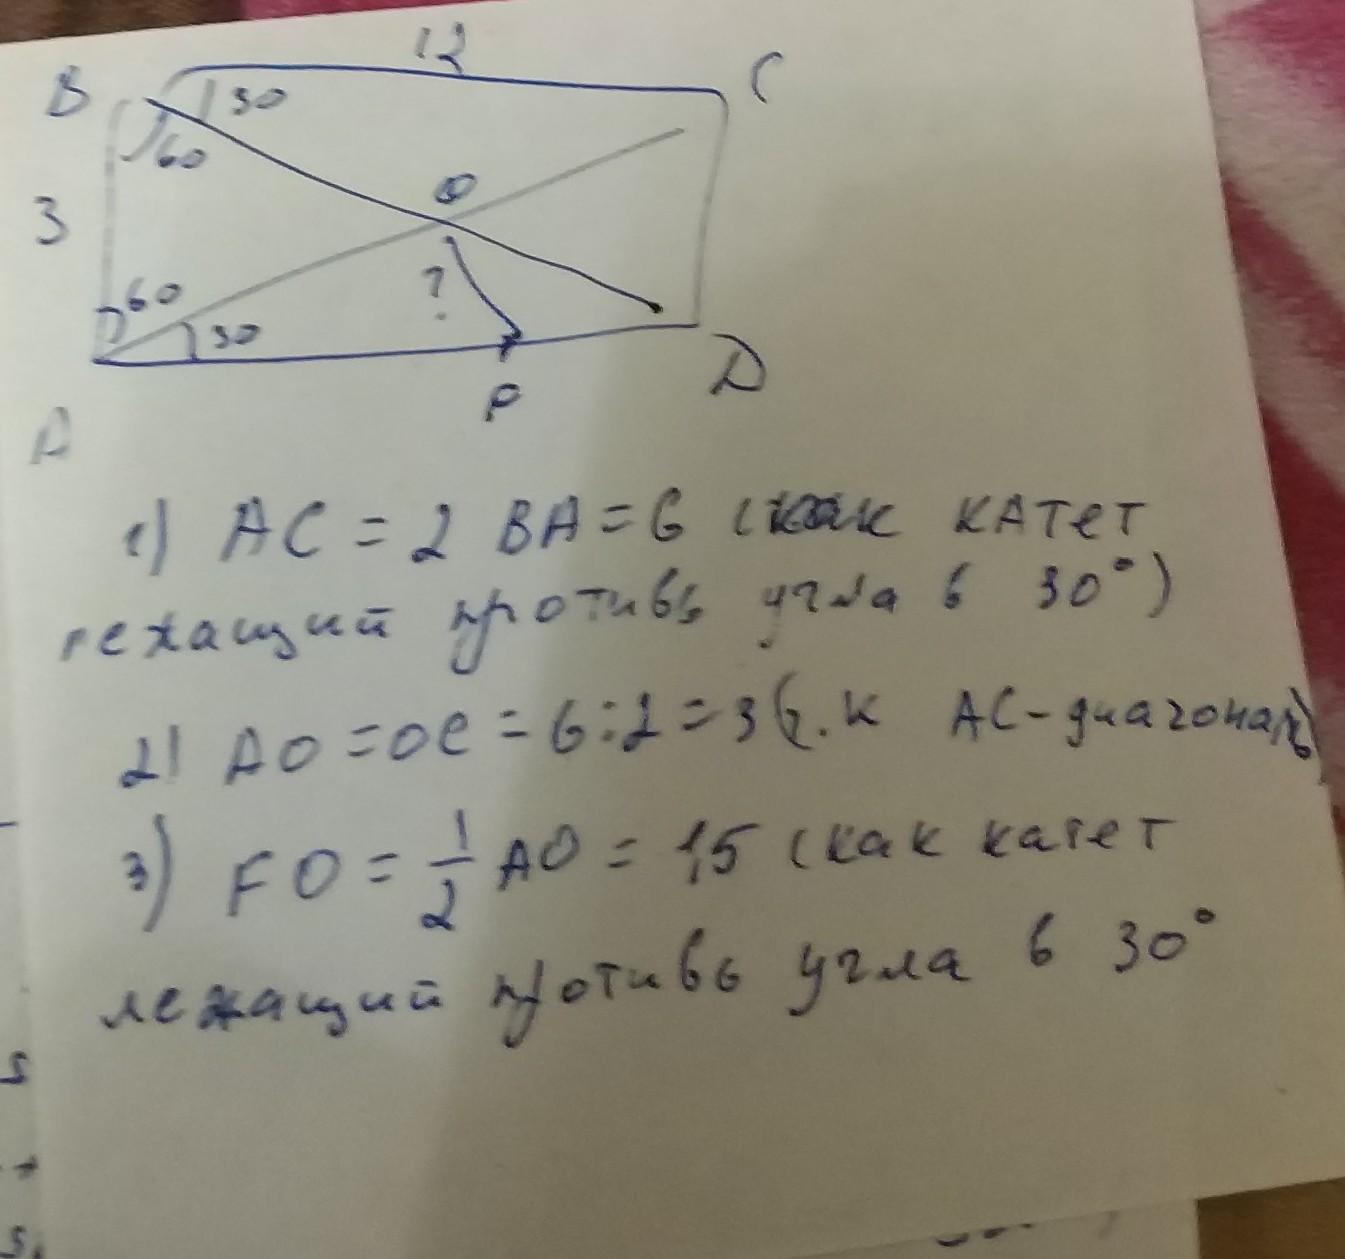 12
B
30
C
60
O
3
?
60
30
D
P
A
1) AC = 2 BA = 6 (как катет
лежащий противь угла в 30°)
2) AO = OC = 6:2 = 3 (т.к AC - диагональ)
3) FO = 1/2 AO = 1,5 (как катет
лежащий противь угла в 30°